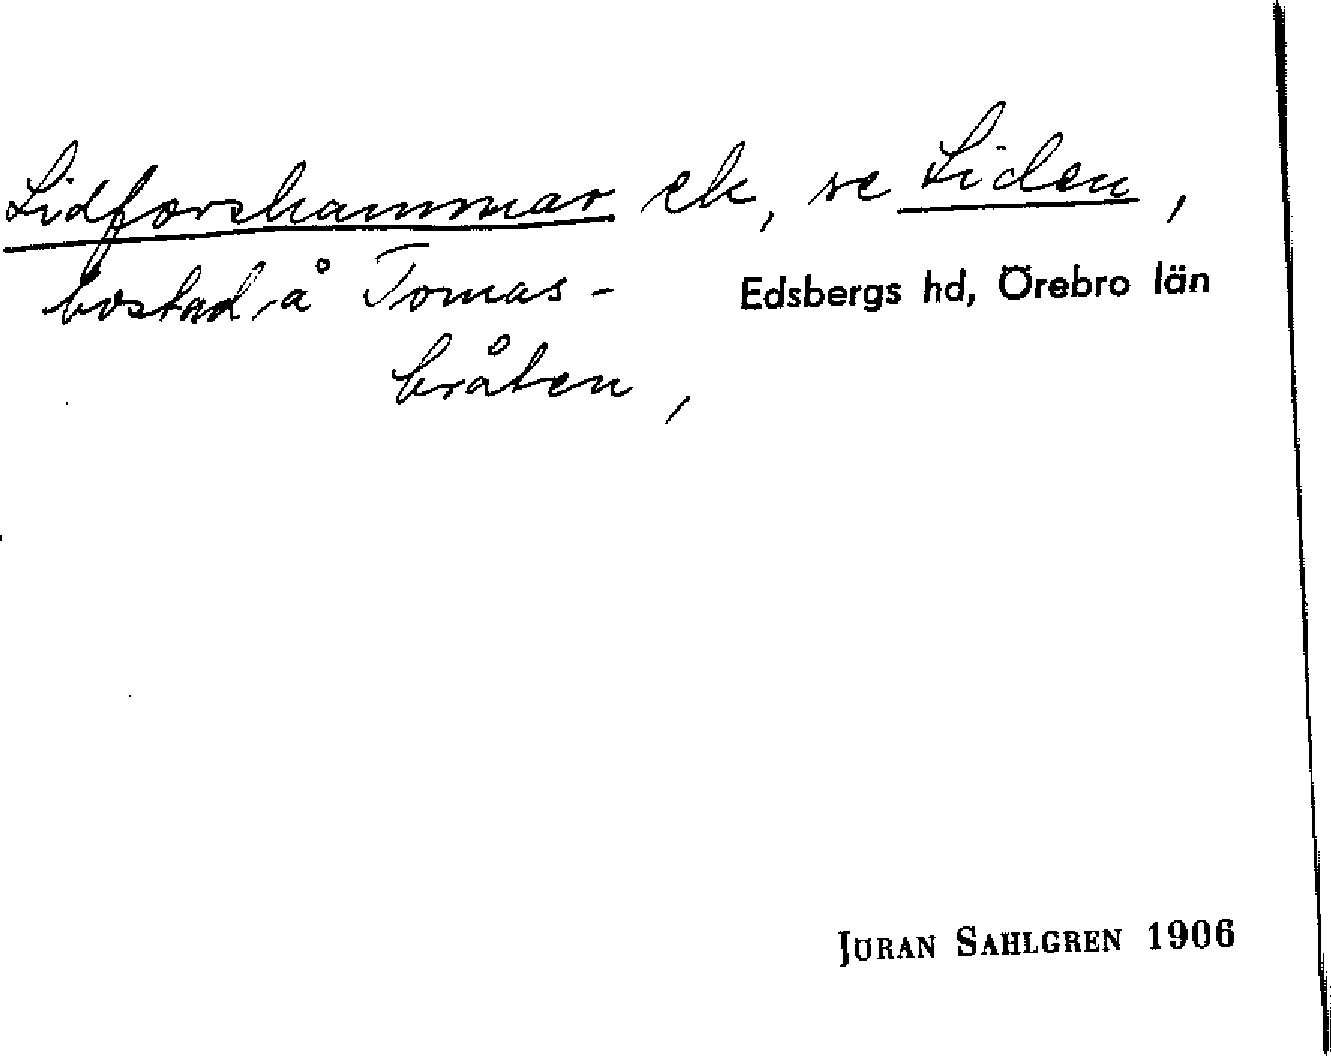 Lidforshammar ek, se Liden,
bostad å Tomas-
bråten,
Edsbergs hd, Örebro län
JÖRAN SAHLGREN 1906